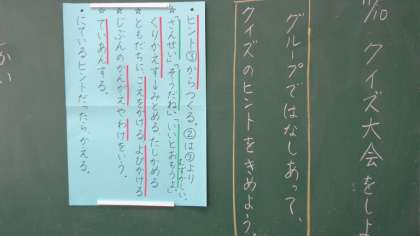 11/10 クイズ大会をしよ
グループではなしあって、
クイズのヒントをきめよう。
・ヒント③からつくる。②は③より
むずかしい。
☆「さんせい」「そうだね」「いいとおもうよ」
くりかえす→みとめる、たしかめる
☆ ともだちに、こえをかける、よびかける
☆ じぶんのかんがえやわけをいう。
☆ ていあんする。
・にているヒントだったらかえる。